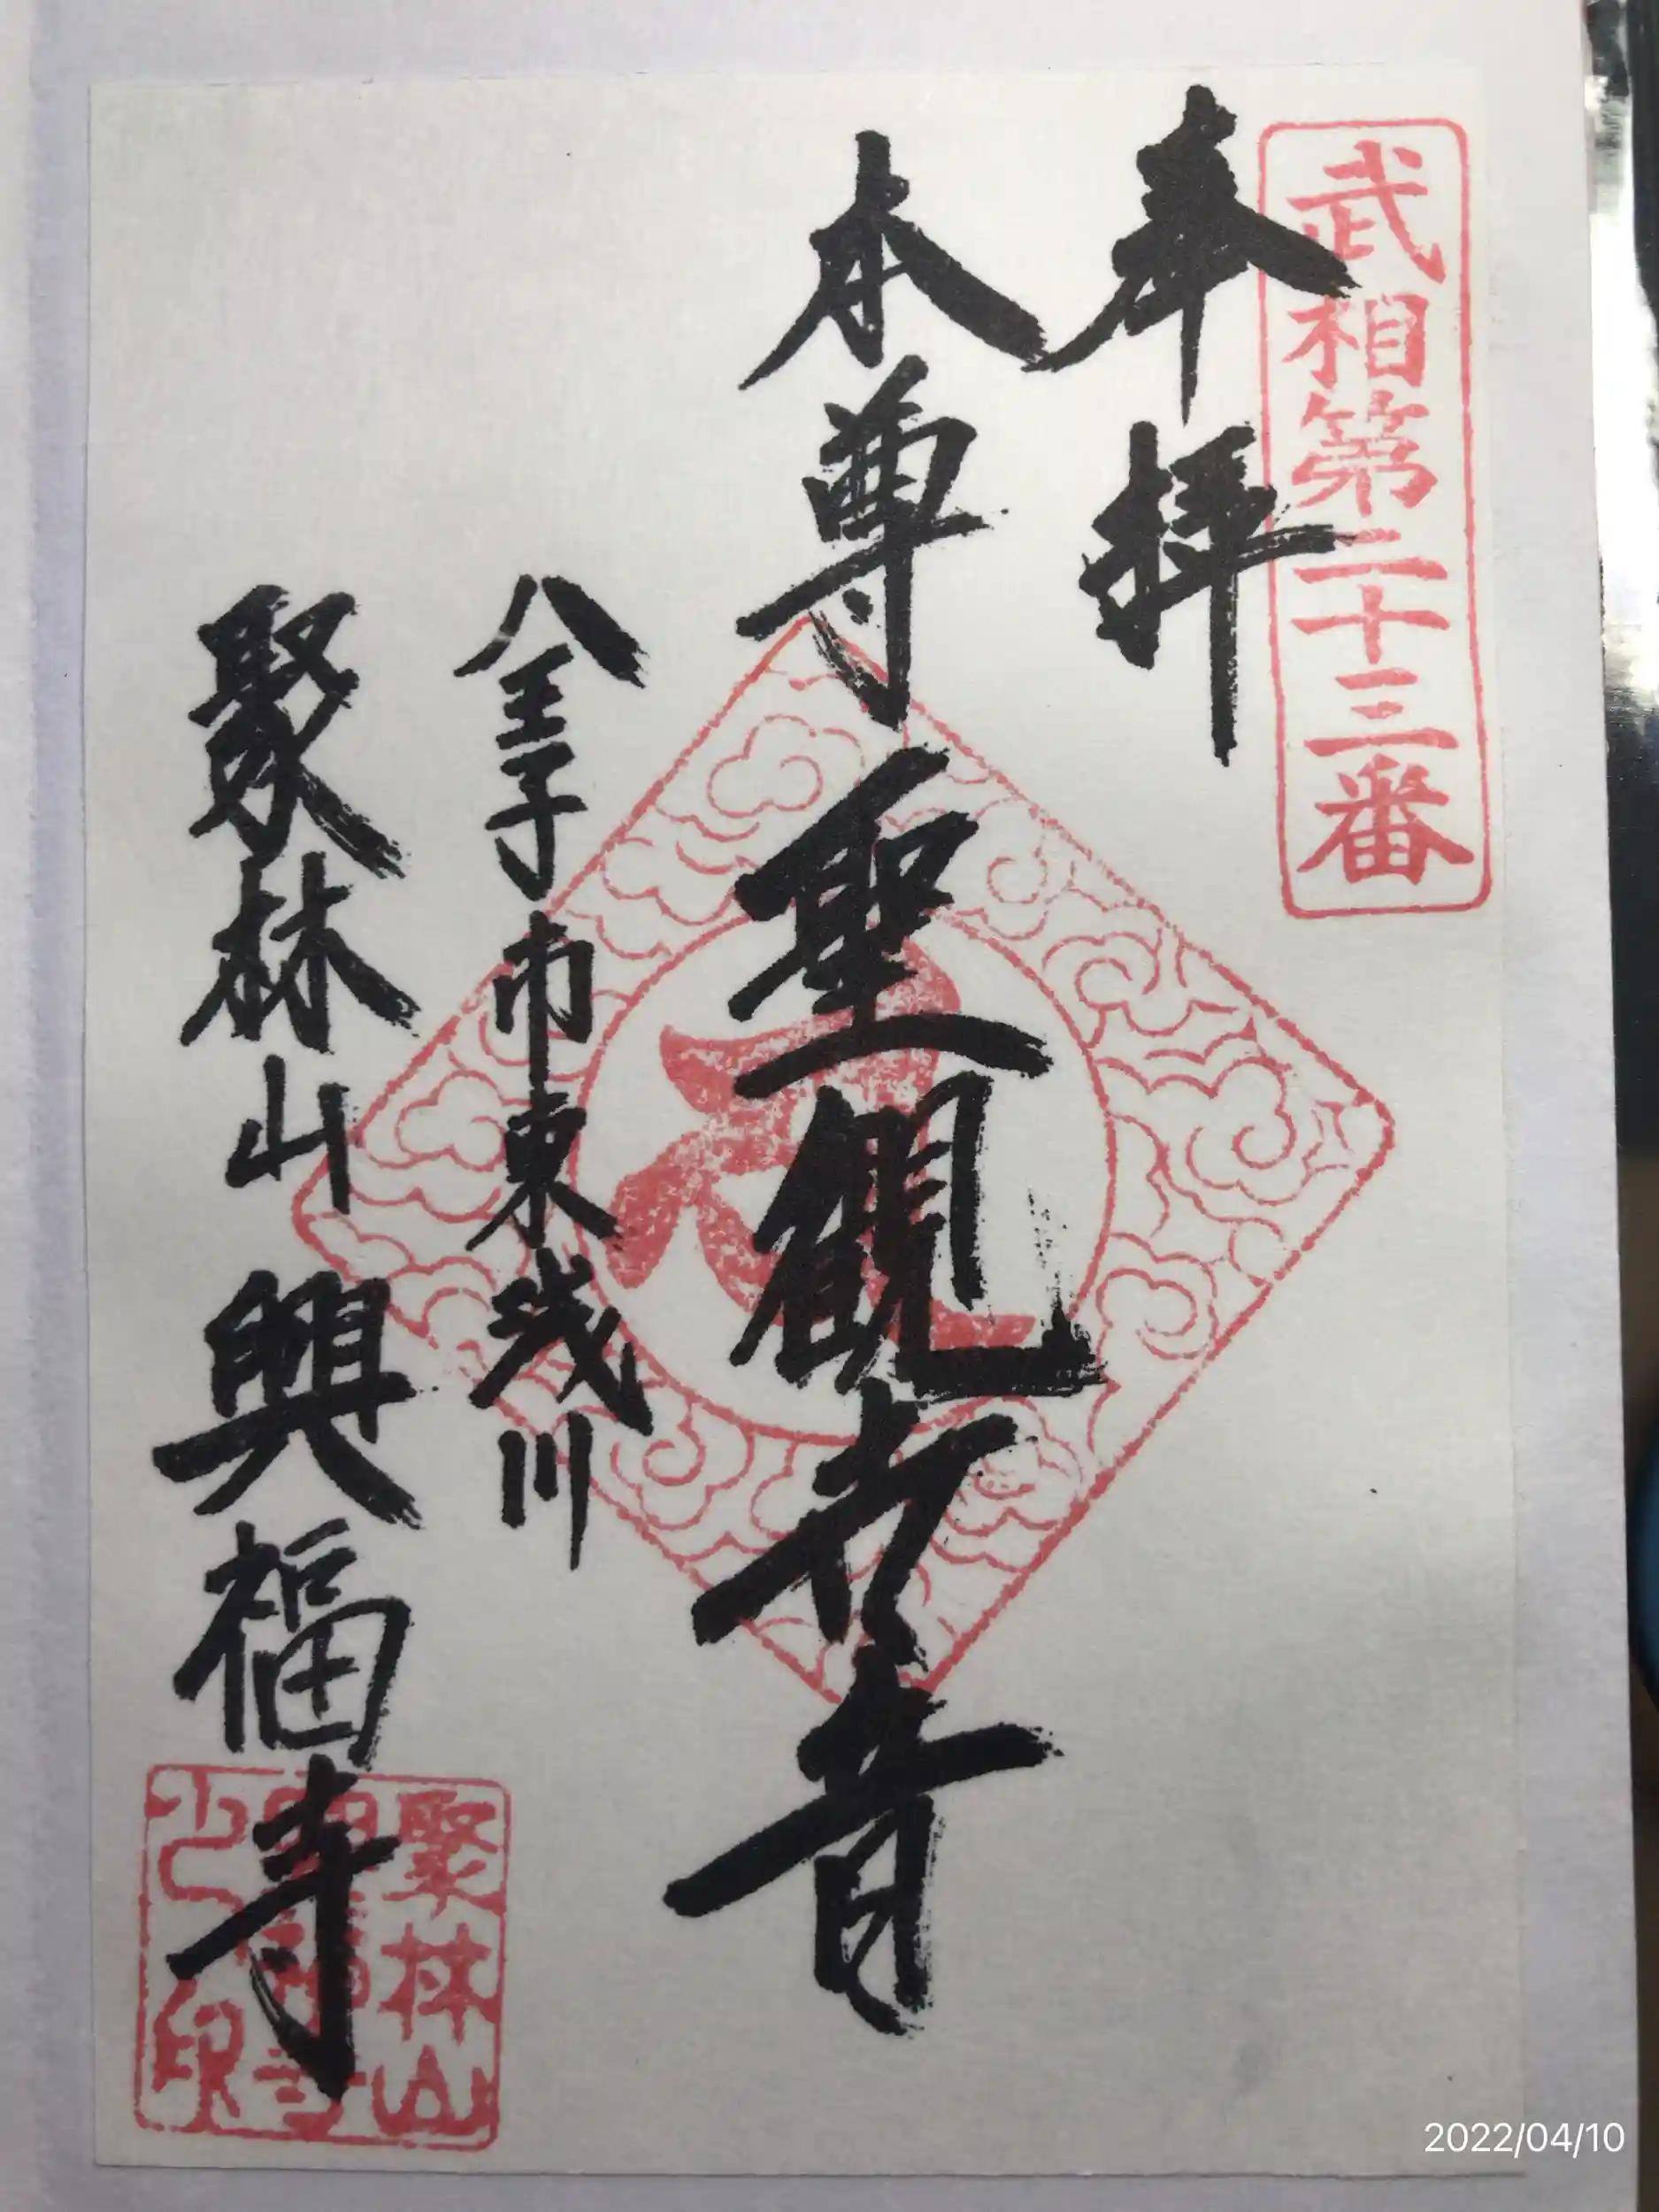 武相第二十三番
奉拝
本尊聖観世音
八王子市東浅川
聚林山興福寺
聚林山
興福寺
之印
2022/04/10